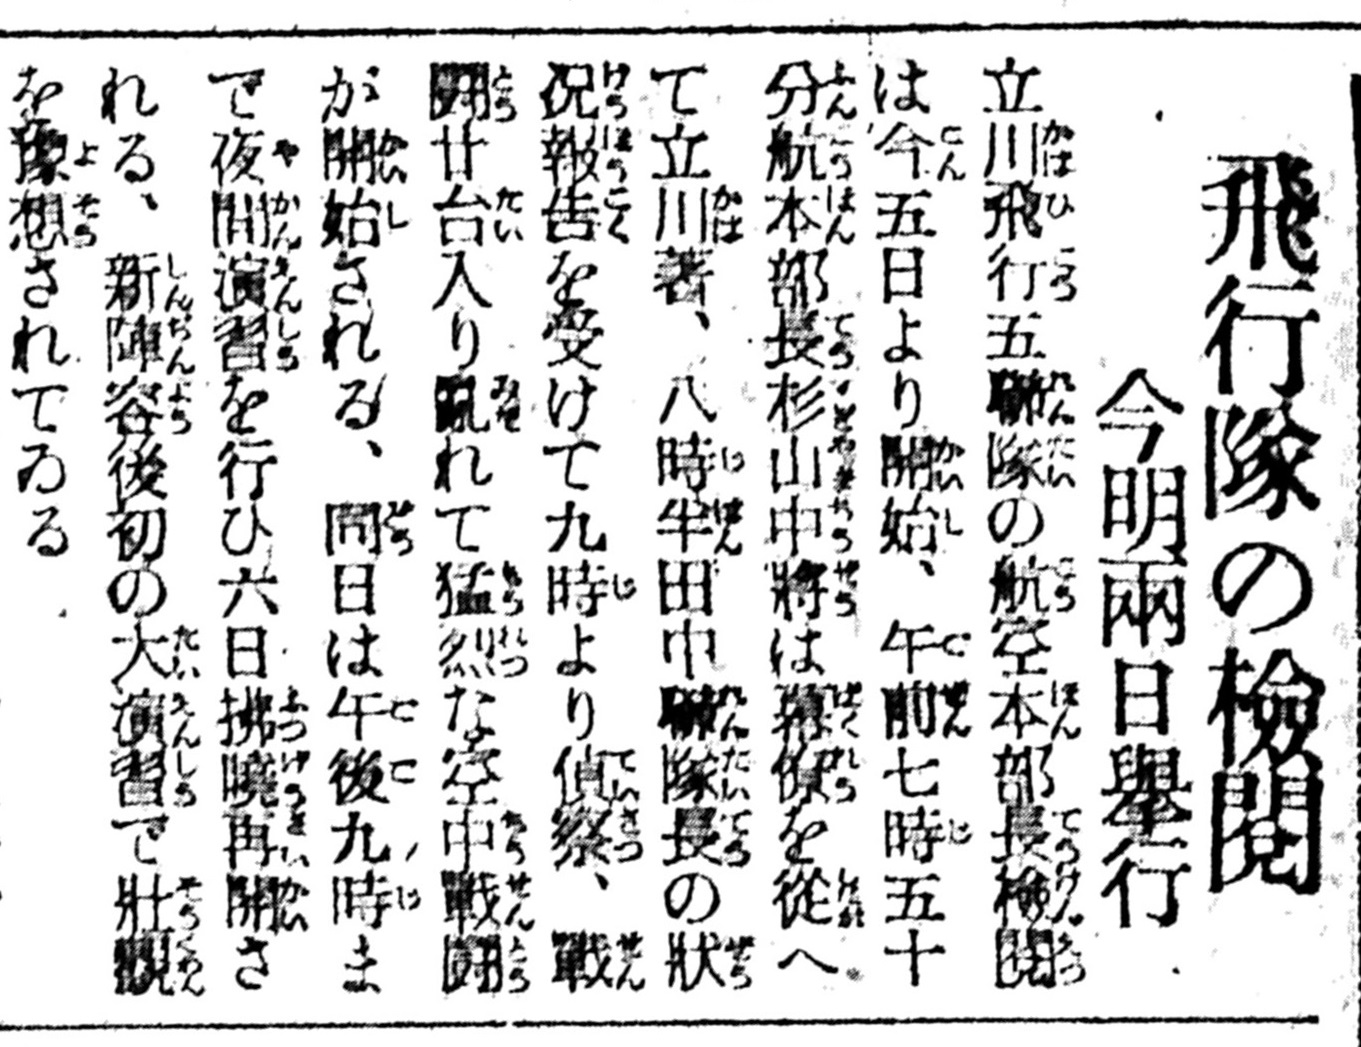 飛行隊の檢閱
今明兩日擧行
立川飛行五聯隊の航空本部長檢閱
は今五日より開始、午前七時五十
分航本部長杉山中將は幕僚を從へ
て立川著、八時半田中聯隊長の狀
況報告を受けて九時より偵察、戰
鬪廿台入り亂れて猛烈な空中戰鬪
が開始される、同日は午後九時ま
で夜間演習を行ひ六日拂曉再開さ
れる、新陣容後初の大演習で壯觀
を豫想されてゐる